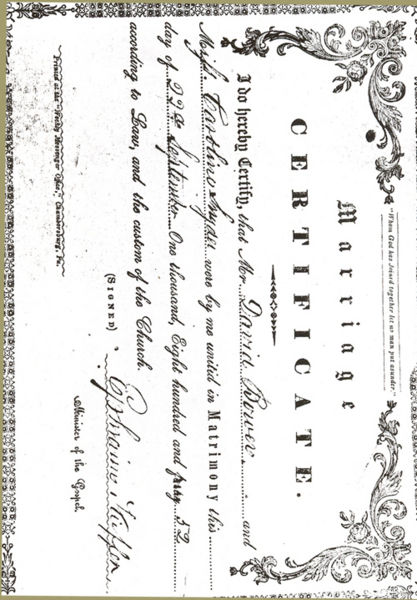 "Whom God has Joined together let no man put asunder."
Marriage
CERTIFICATE.
I do hereby Certify, that Mr. David Brower and
Miss Caroline Snyder were by me united in Matrimony this
day of 22d September One thousand, Eight hundred and fifty 52
according to Law, and the custom of the Church.
(SIGNED)
Ephraim
Minister of the Gospel.
Printed at the Weekly Messenger Office, Chambersburg, Pa.